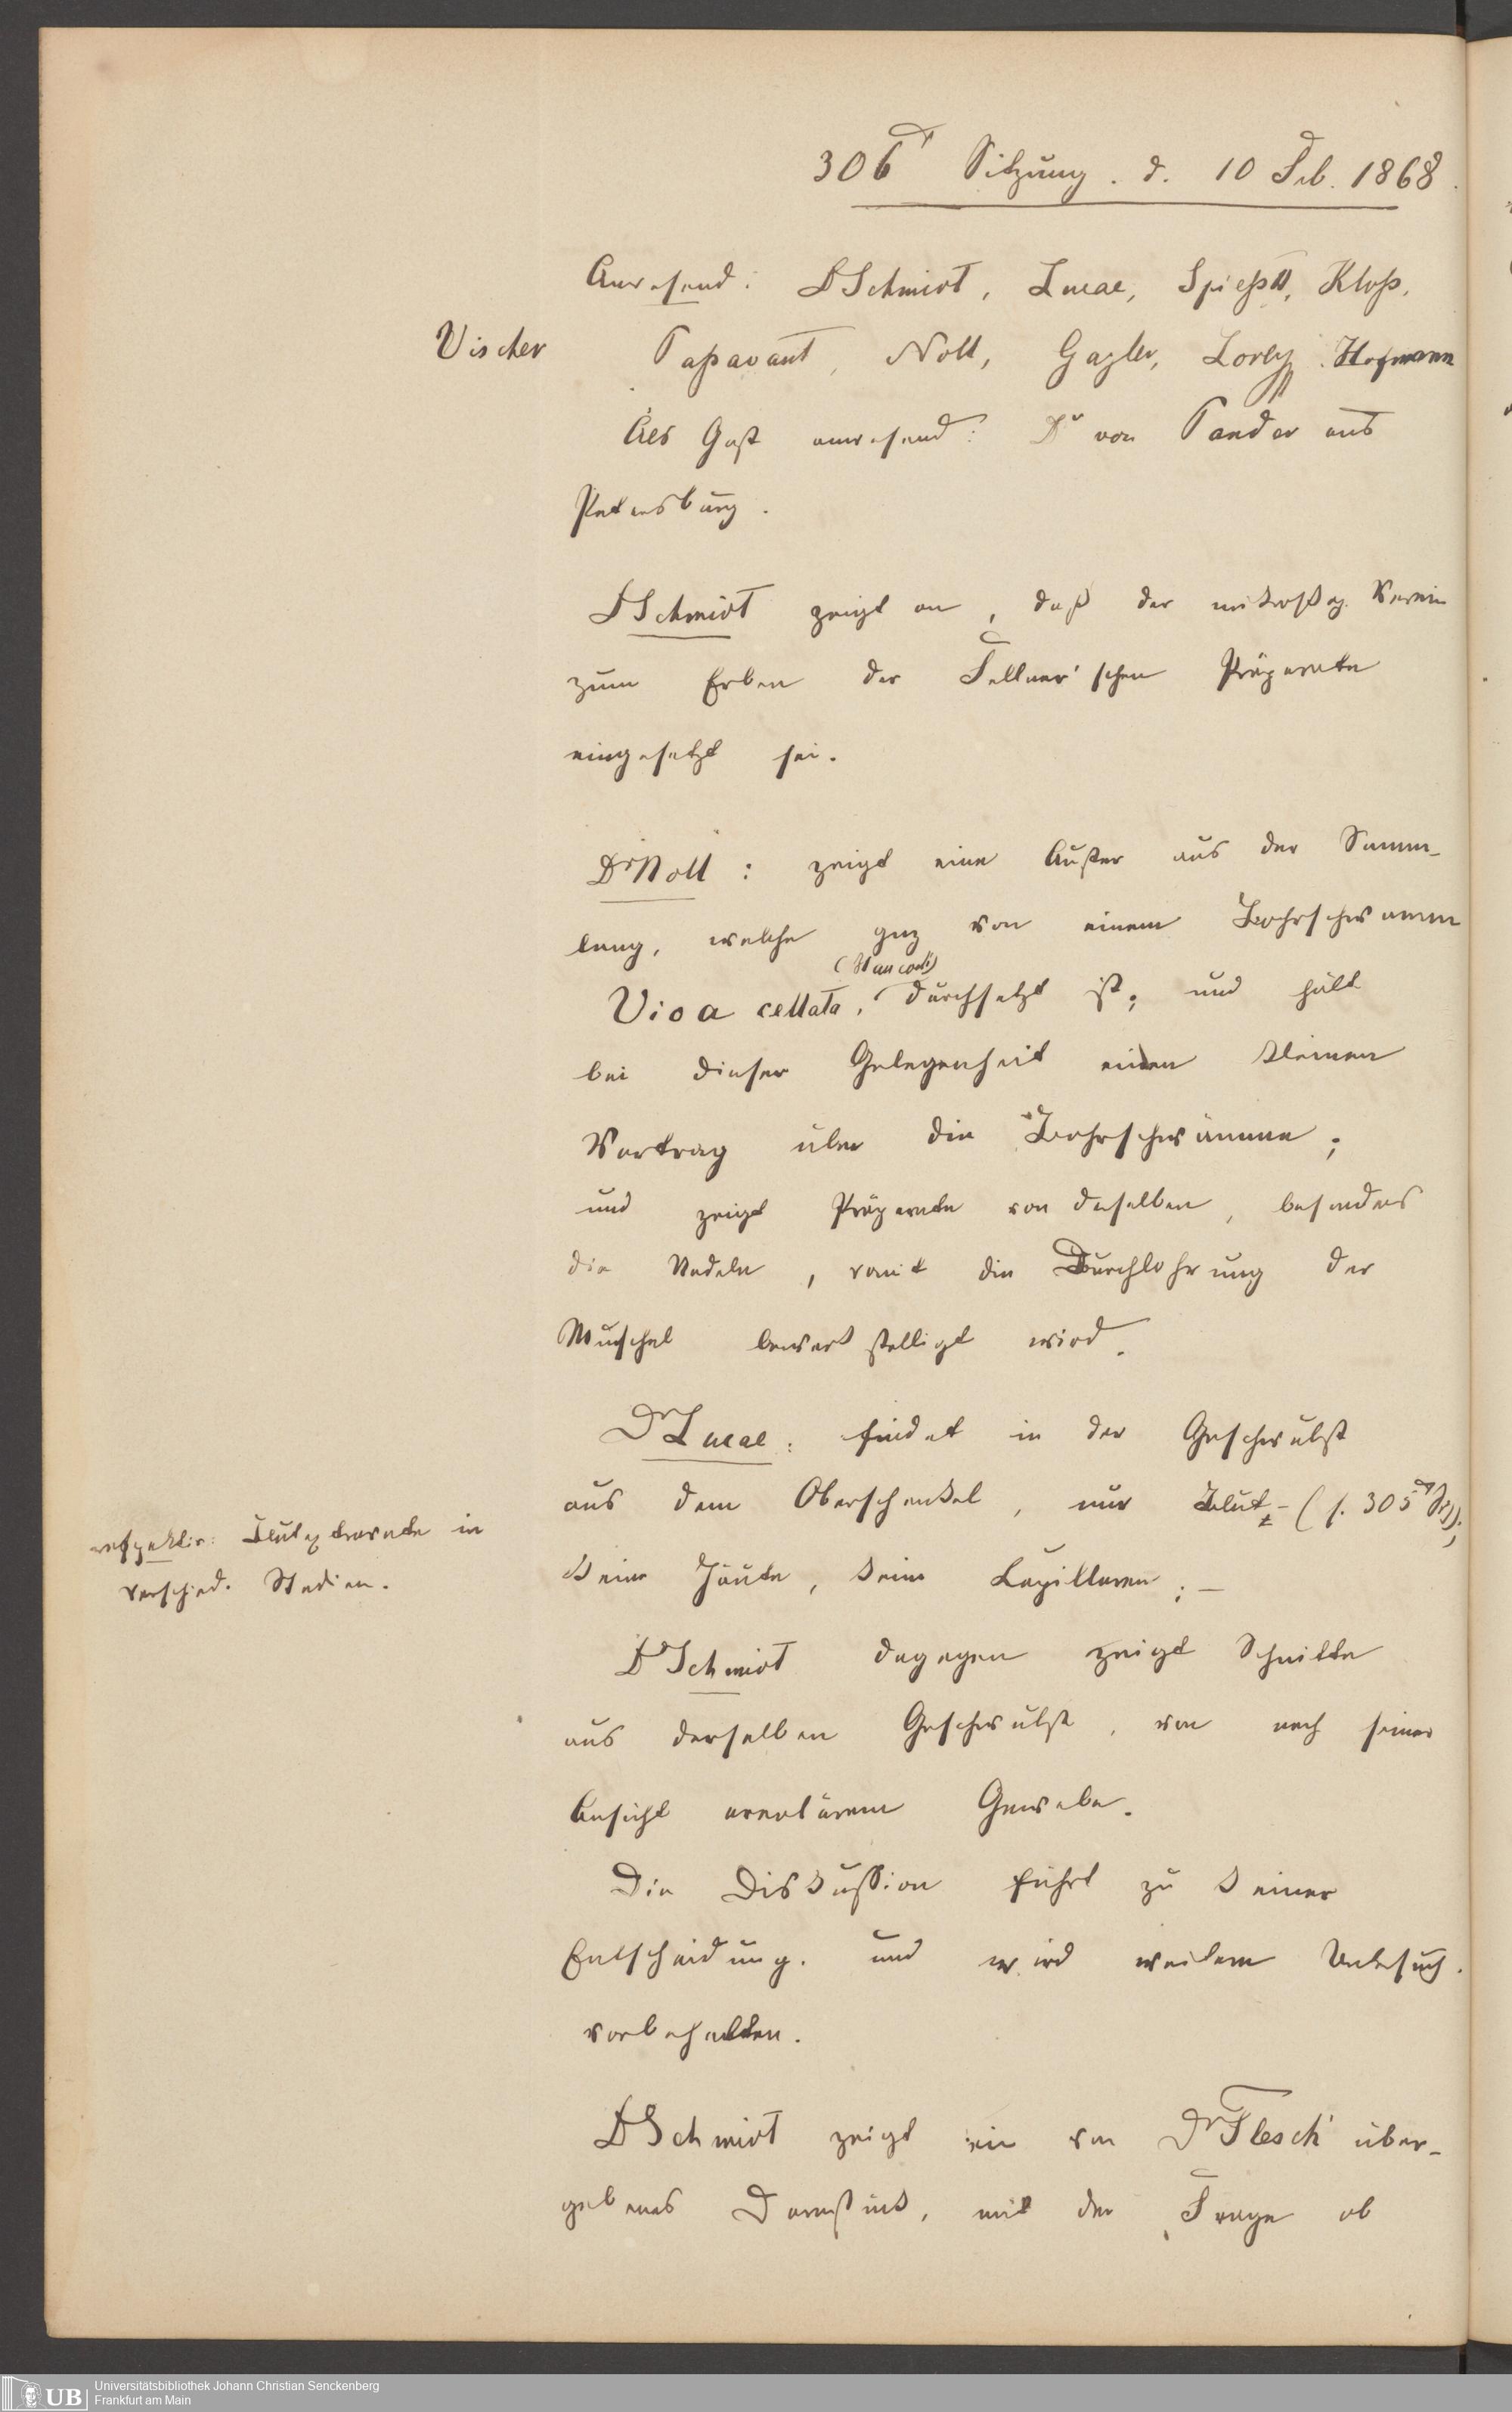 306t Sitzung. d. 10 Feb. 1868.
Anwesend: Dr Schmidt, Lucae, Spieß II, Kloß,
Vischer Passavant, Noll, Gazler, Lorey, Hofmann
Als Gast anwesend: Dr von Pander aus
Petersburg.
Dr Schmidt zeigt an, daß der mikroskop. Verein
zum Erben der Fellner'schen Präparate
eingesetzt sei.
Dr Noll: zeigt eine Auster aus der Samm-
lung, welche ganz von einem Bohrschwamm
Vioa cellata, durchsetzt ist; und hält
bei dieser Gelegenheit einen kleinen
Vortrag über die Bohrschwämme;
und zeigt Präparate von denselben, besonders
die Nadeln, womit die Durchbohrung der
Muschel bewerkstelligt wird.
Dr Lucae: findet in der Geschwulst
aus dem Oberschenkel, nur Blut- (s. 305t Sitz);
keine Häute, keine Capillaren; -
respektiv: Blutextravate in
verschied. Stadien.
Dr Schmidt dagegen zeigt Schnitte
aus derselben Geschwulst, von nach seiner
Ansicht areolärem Gewebe.
Die Diskussion führt zu keiner
Entscheidung. und wird weiterer Untersuch.
vorbehalten.
Dr Schmidt zeigt ein von Dr Flesch über-
gebenes Darmstück, mit der Frage ob
Universitätsbibliothek Johann Christian Senckenberg
UB Frankfurt am Main